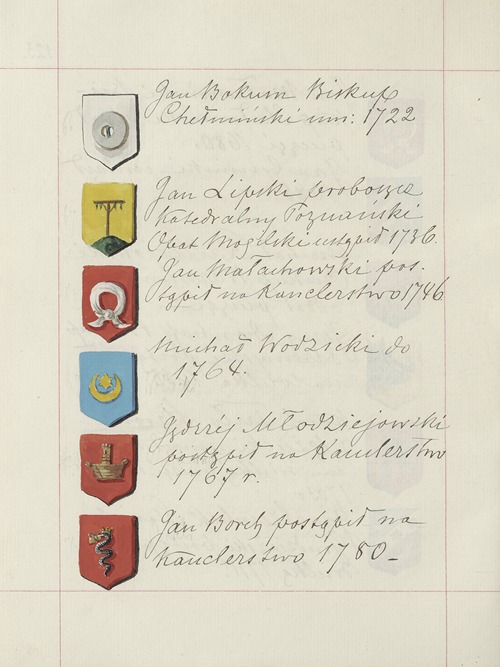 Jan Bokum Biskup
Chełmiński um: 1722
Jan Lipski proboszcz
Katedralny Poznański
Opat Mogilski ustąpił 1736.
Jan Małachowski pos-
tąpił na Kanclerstwo 1746
Michał Wodzicki do
1764.
Jędrzéj Młodziejowski
postąpił na Kanclerstwo
1767 r.
Jan Borch postąpił na
Kanclerstwo 1780 –